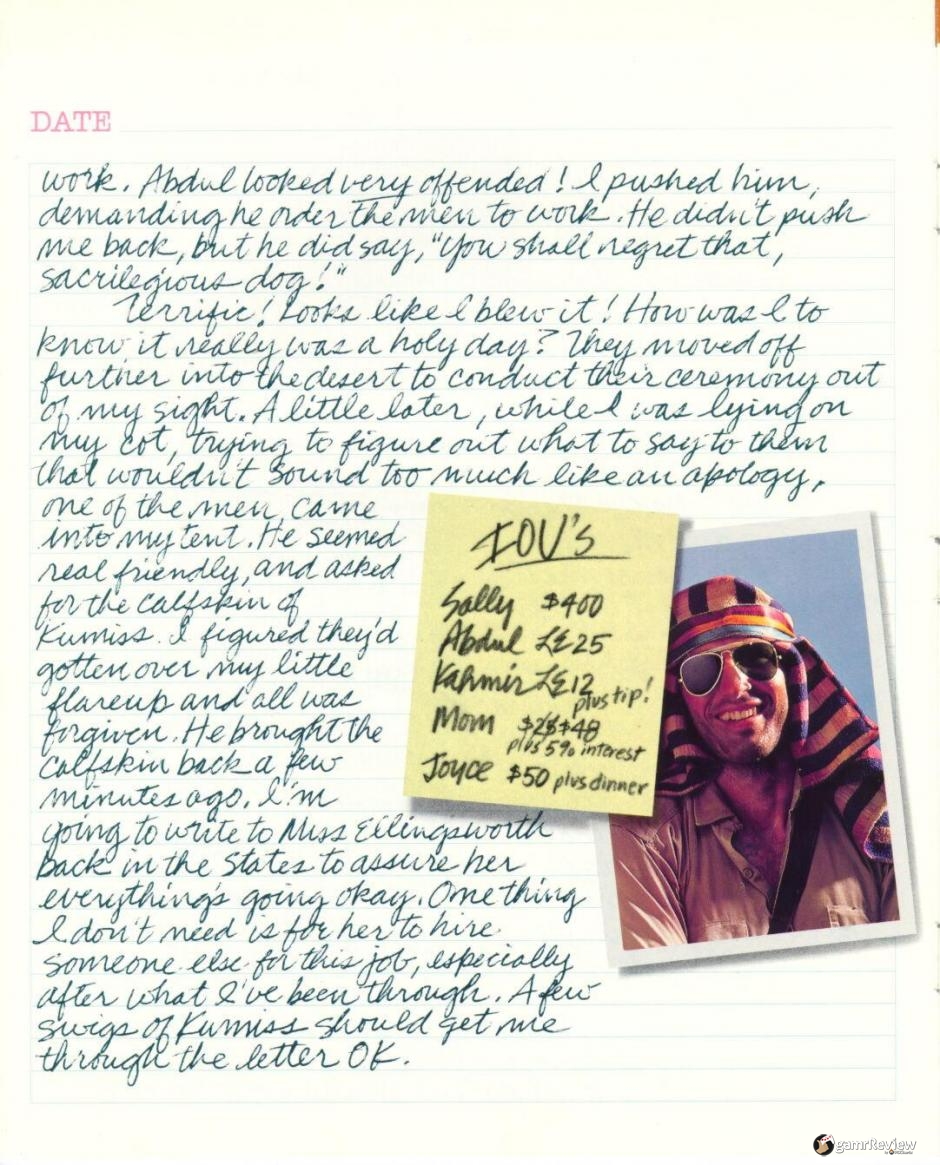 DATE
work. Abdul looked very offended! I pushed him,
demanding he order the men to work. He didn't push
me back, but he did say, "You shall regret that,
sacrilegious dog!"
Terrific! Looks like I blew it! How was I to
know it really was a holy day? They moved off
further into the desert to conduct their ceremony out
of my sight. A little later, while I was lying on
my cot, trying to figure out what to say to them
that wouldn't sound too much like an apology,
one of the men came
into my tent. He seemed
real friendly, and asked
for the calfskin of
Kumiss. I figured they'd
gotten over my little
flareup and all was
forgiven. He brought the
calfskin back a few
minutes ago. I'm
going to write to Miss Ellingsworth
back in the States to assure her
everything's going okay. One thing
I don't need is for her to hire
someone else for this job, especially
after what I've been through. A few
swigs of Kumiss should get me
through the letter OK.
IOU's
Sally $400
Abdul L£25
Kahmir L£12
plus tip!
Mom $26 $48
plus 5% interest
Joyce $50 plus dinner
gamrReview